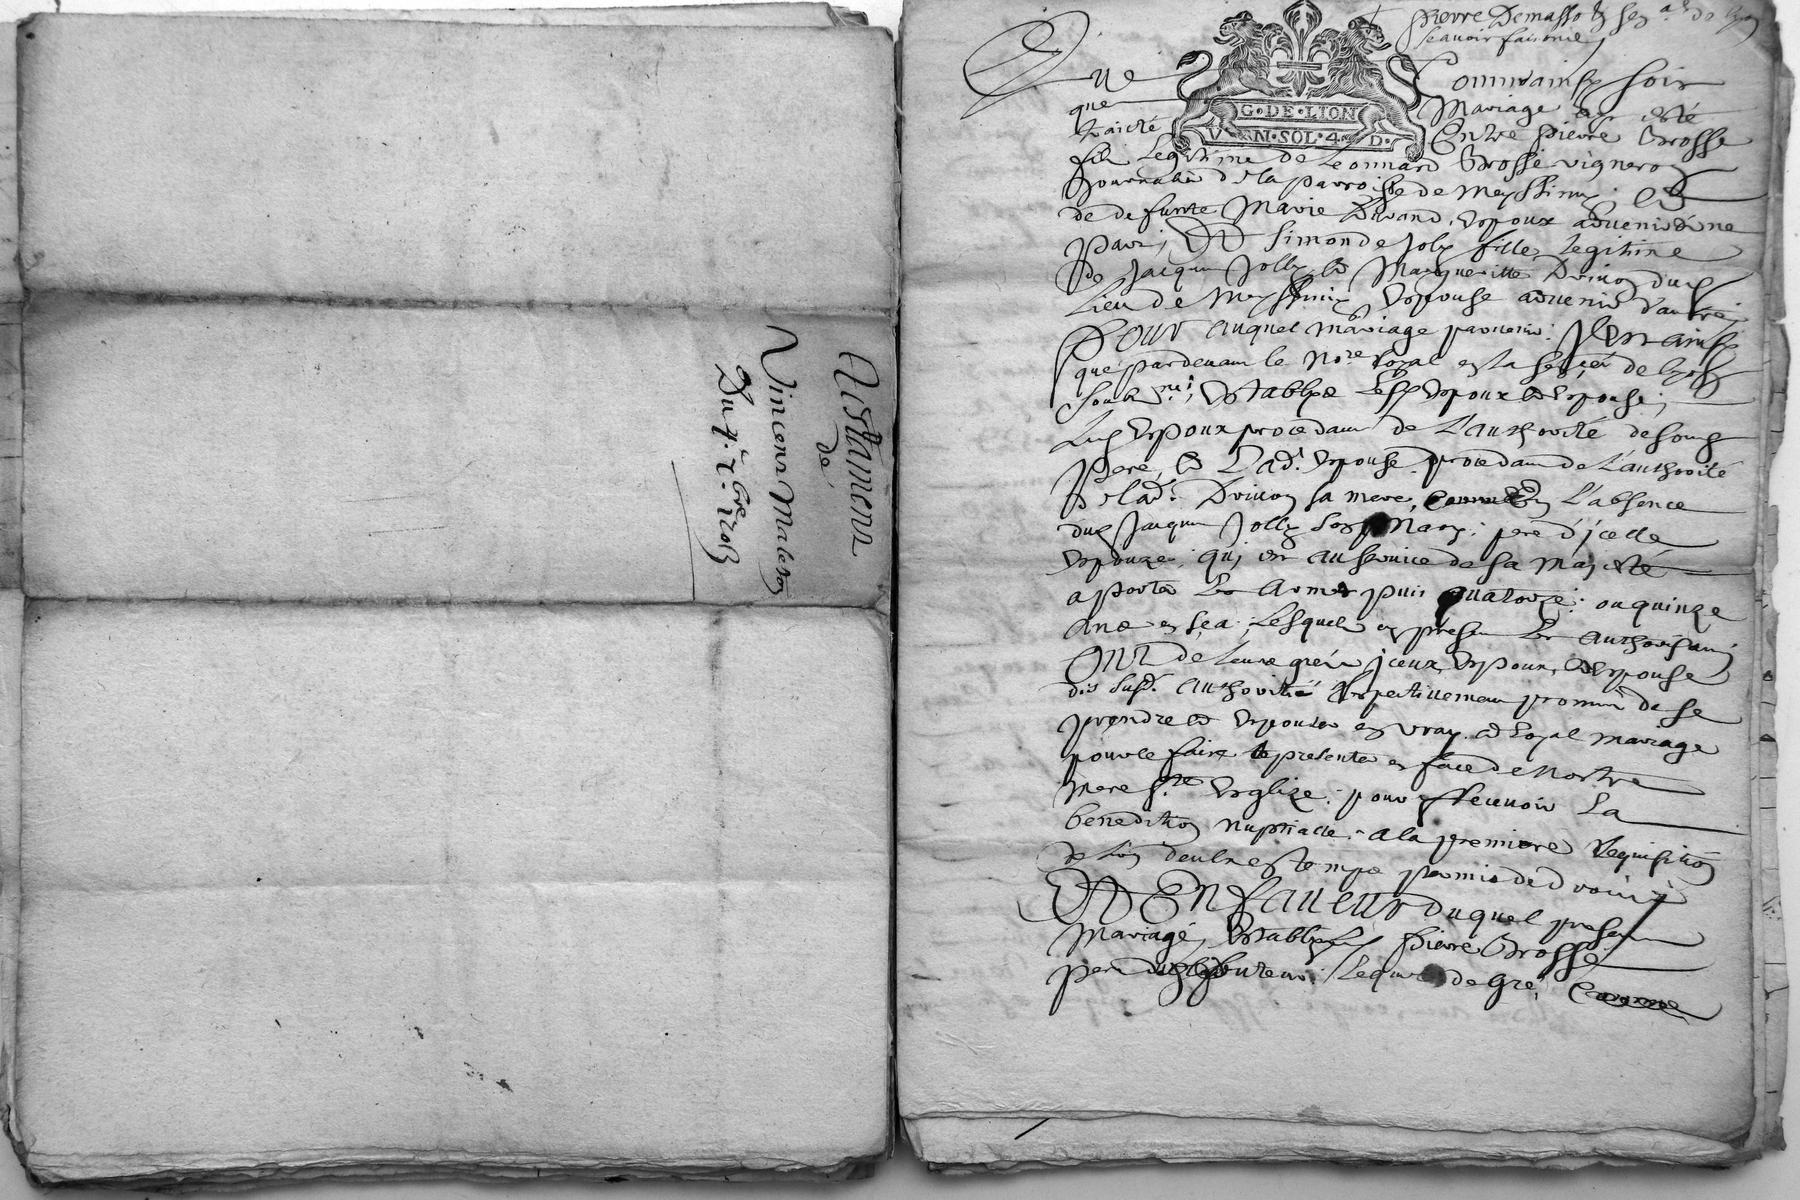 Testament
de
Vincent Maleson
Du 4e xbre 1708
Pierre Demasso
scavoir faisons
G·DE·LION
VN·SOL·4·D·
Que Comm ainsy soit
que Mariage ayt esté
traicté Entre pierre Grosse
filz Legitime de Leonnard Grosse vigneron
Journalier de la parroisse de Meyssimy Et
de defunte Marie Durand, Espoux advenir d'une
part; Et Simonde Joly fille Legitime
de Jacques Jolly Et Margueritte Drivon dud
Lieu de Meyssimy Espouse advenir d'autre
Pour auquel Mariage parvenir: Il Est ainsy
que pardevant le Nore Royal en la sen. de Lyon
soub.né; Establys Lesd Espoux Et Espouse;
Lud Espoux procedant de L'authorité de son
pere, Et Lad. Espouse procedant de L'authorité
de lad. Drivon sa mere, L'absence
dud Jacques Jolly son Mary: pere d'icelle
Espouze; qui est au service de sa Majesté
a porter Les Armes puis quatorze: ou quinze
Ans en sça; Lesquels en presen Les authorisant
ONT de Leurs gréz iceux Espoux, Et Espouse
dis susd. authorité Respectivement promis de se
prendre Et Espouser en vray et Loyal mariage
pour ce faire se presenter en face de Nostre
Mere Ste Esglize; pour y Recevoir La
benediction Nuptialle: a la premiere Requisition
de L'un d'eulx en temps permis de droict
Et EN faveur duquel present
Mariage, Estably Pierre Grosse
pere Lequel de gré